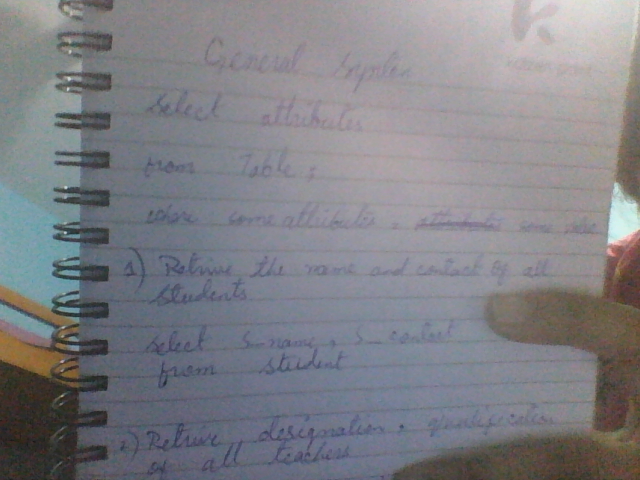 General Syntax
Select attributes
from Table ;
where some attributes = attributes some value
1) Retrive the name and contact of all
students
select S_name, S_contact
from student
2) Retrive designation, qualification
of all teachers